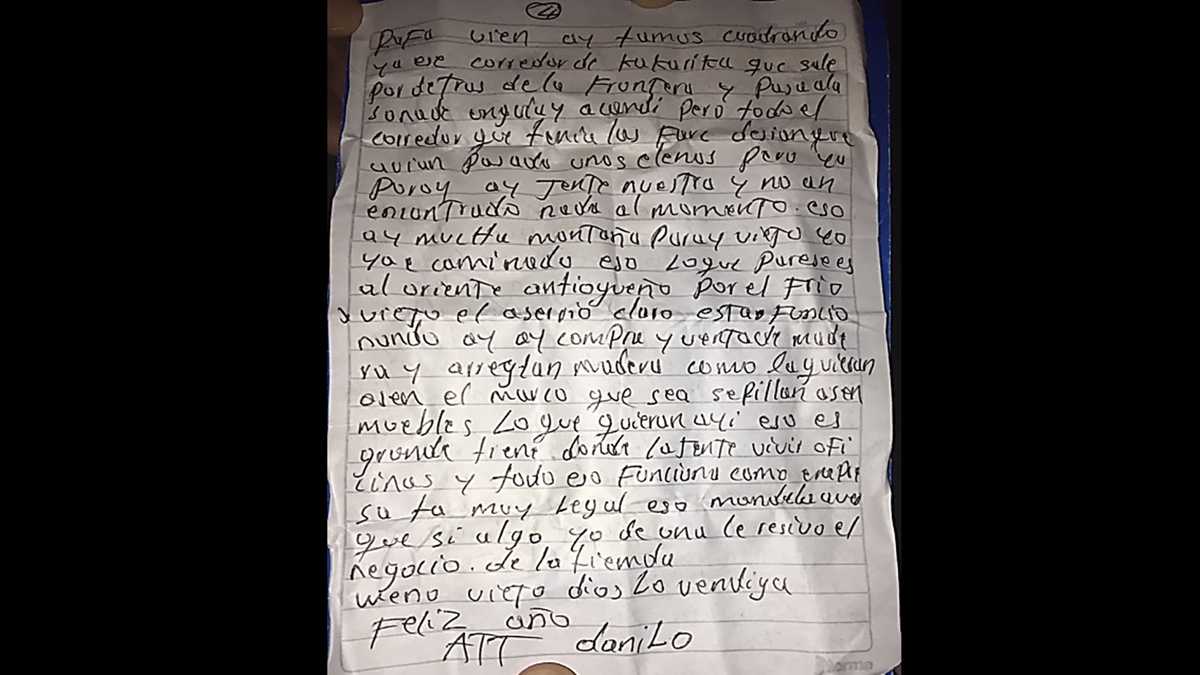 4
PaFa vien ay tamos cuadrando
ya ese corredor de kukarika que sale
por detras de la Frontera y pasa ala
sona de unguia y acandi pero todo el
corredor que tenia las Farc desian que
avian pasado unos elenos pero ya
poray ay jente nuestra y no an
encontrado nada al momento. eso
ay mucha montaña poray viejo yo
ya e caminado eso lo que parese es
al oriente antioqueño por el Frio
y viejo el aserrio claro esta Funcio
nando ay ay compra y venta de made
ra y arreglan madera como la quieran
asen el marco que sea sepillan asen
muebles Lo que quieran ayi eso es
grande tiene donde la jente vivir ofi
cinas y todo eso Funciona como
su ta muy Legal eso
que si algo yo de una le resivo el
negocio. de la tiemda
weno viejo dios Lo vendiga
Feliz año
ATT daniLo
Norma